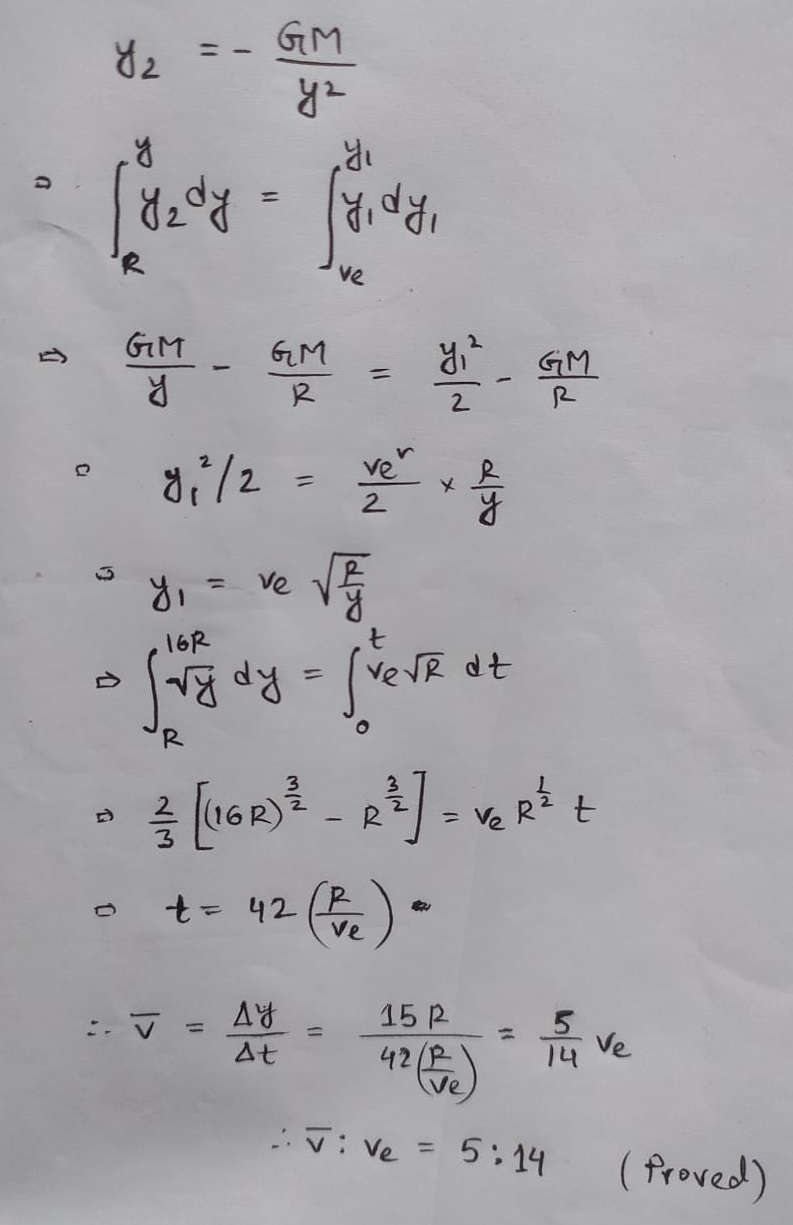 y₂ = - GM/y²
⇒ ∫_R^y y₂ dy = ∫_ve^y₁ y₁ dy₁
⇒ GM/y - GM/R = y₁²/2 - GM/R
⇒ y₁²/2 = veʳ/2 × R/y
⇒ y₁ = ve √(R/y)
⇒ ∫_R^16R √y dy = ∫_0^t ve√R dt
⇒ 2/3 [(16R)^(3/2) - R^(3/2)] = ve R^(1/2) t
⇒ t = 42 (R/ve)
∴ v̅ = Δy/Δt = 15R/42(R/ve) = 5/14 ve
∴ v̅ : ve = 5:14 (Proved)